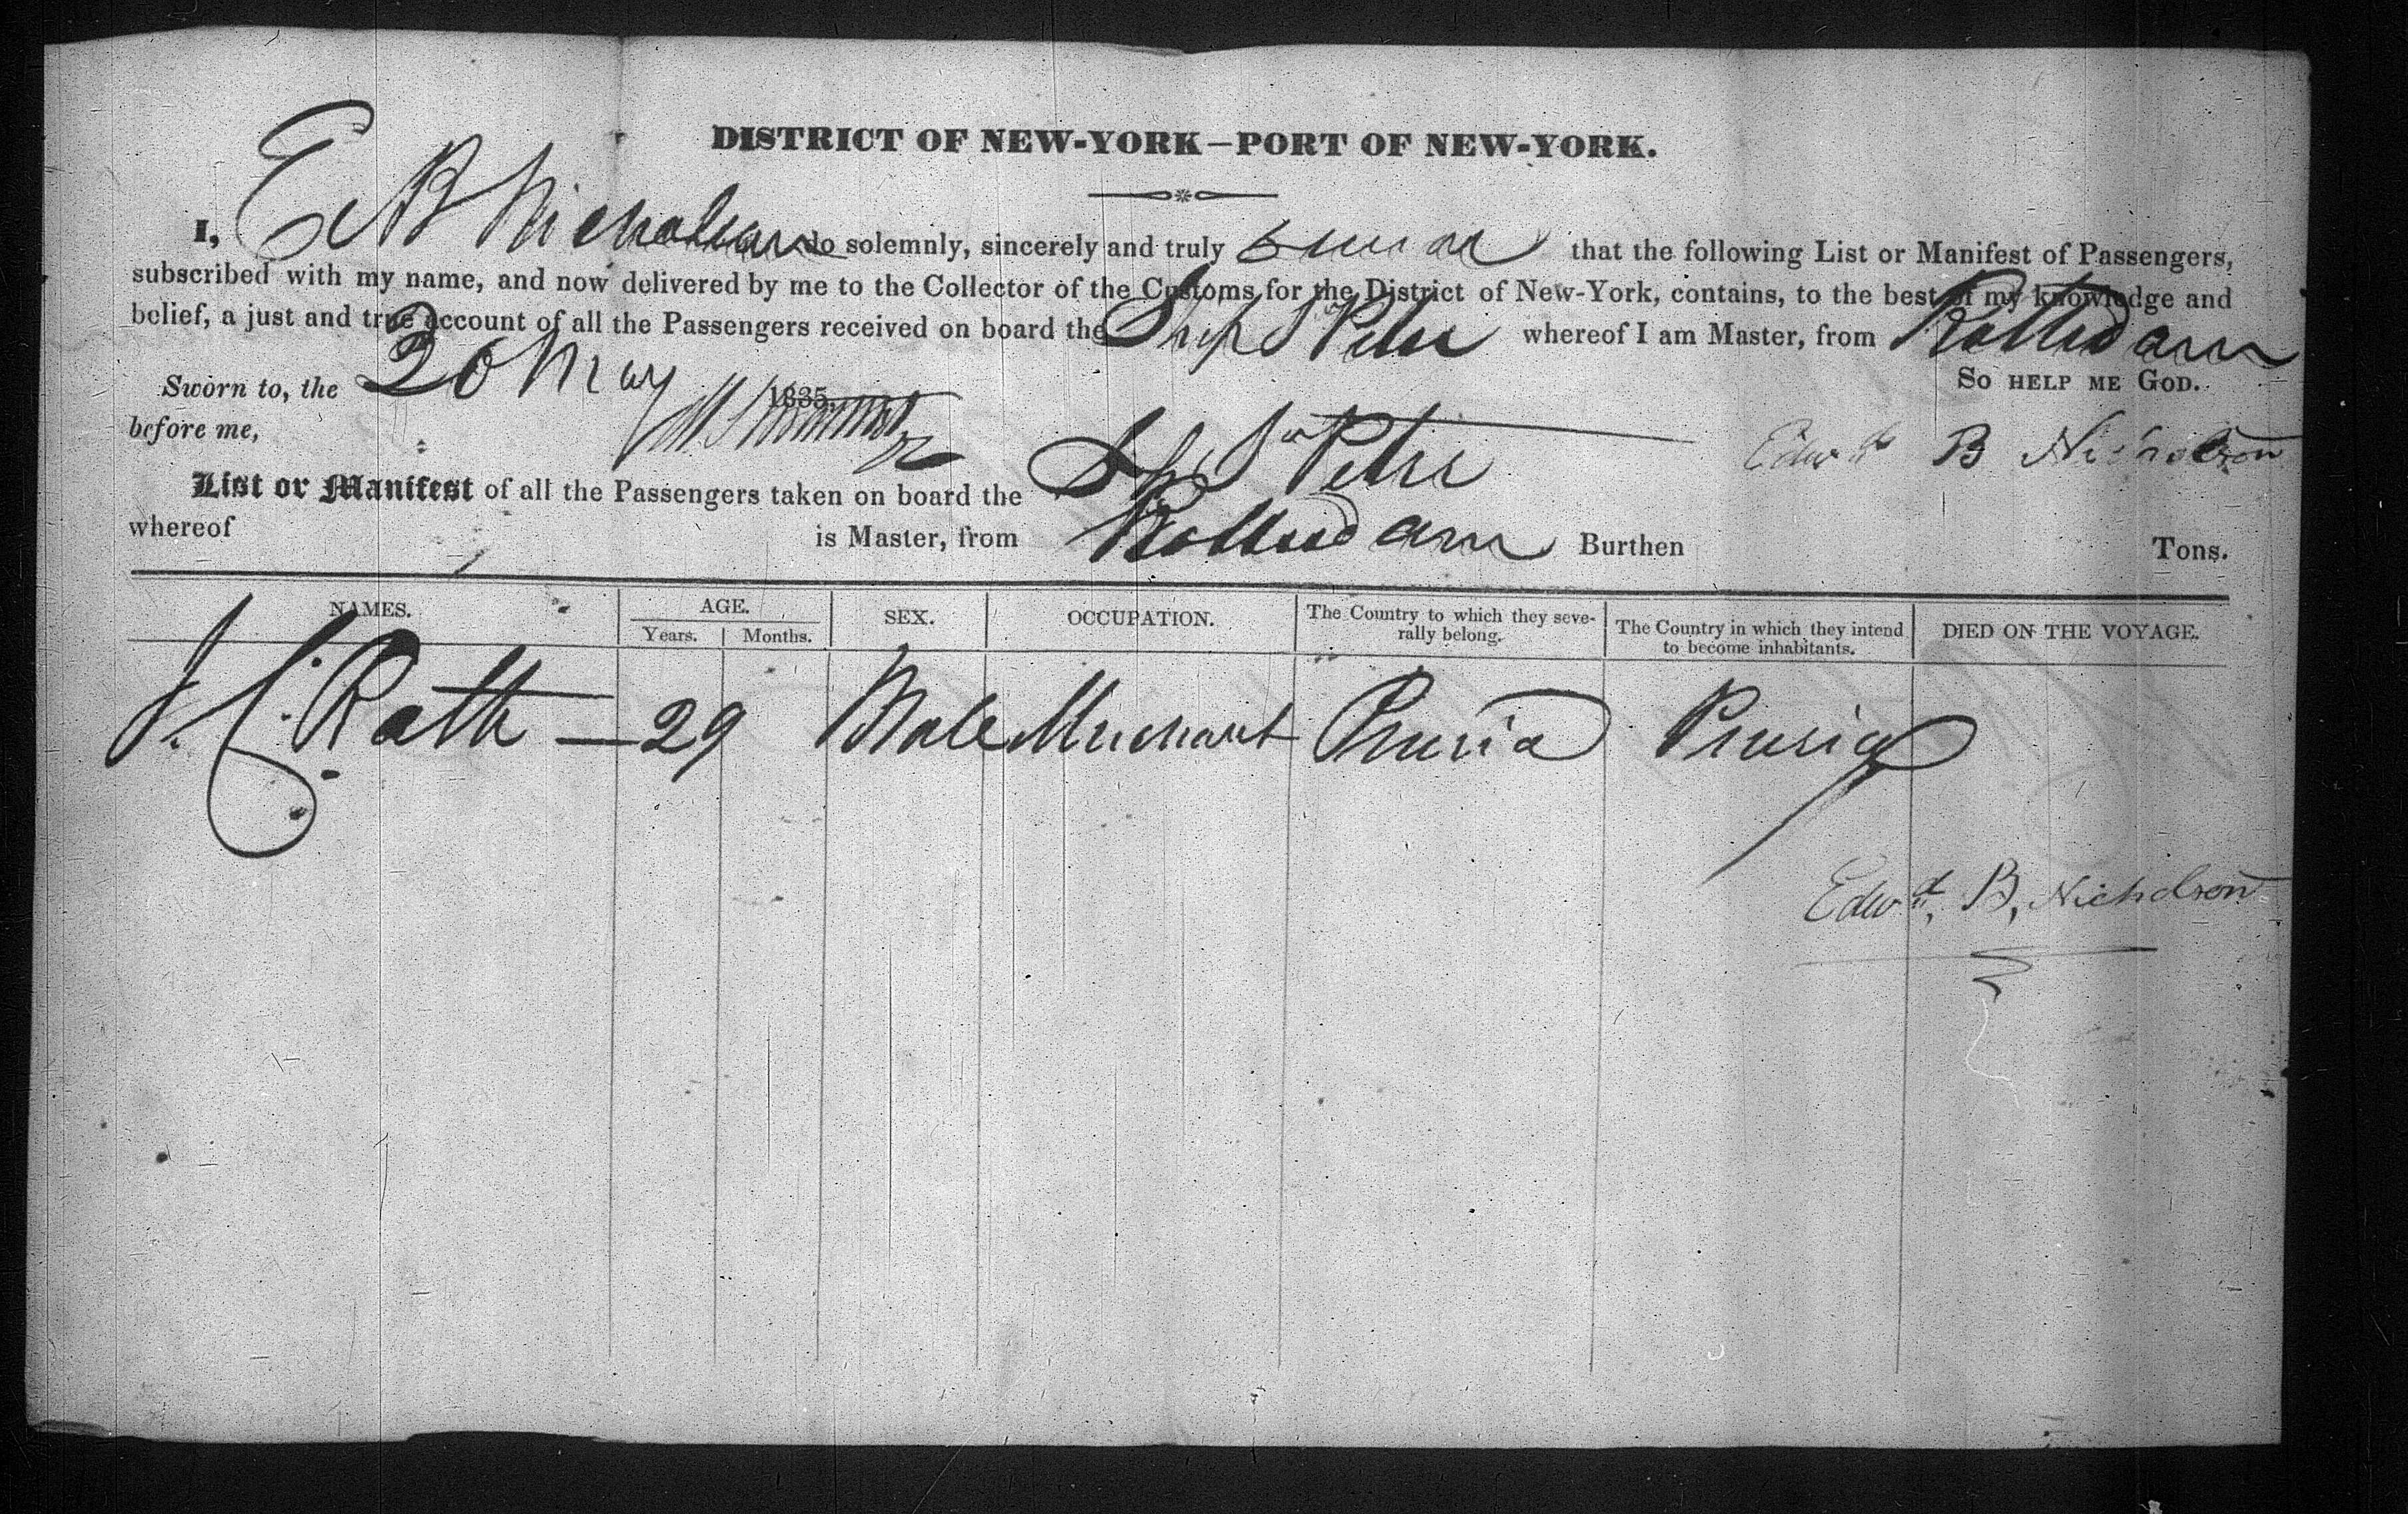 DISTRICT OF NEW-YORK—PORT OF NEW-YORK.
I, E B Nicholson do solemnly, sincerely and truly swear that the following List or Manifest of Passengers,
subscribed with my name, and now delivered by me to the Collector of the Customs for the District of New-York, contains, to the best of my knowledge and
belief, a just and true account of all the Passengers received on board the Ship St Peter whereof I am Master, from Rotterdam
Sworn to, the 20 May 1835, So help me God.
before me, Edwd B Nicholson
List or Manifest of all the Passengers taken on board the Ship St Peter
whereof is Master, from Rotterdam Burthen Tons.
NAMES. AGE. SEX. OCCUPATION. The Country to which they seve-rally belong. The Country in which they intend to become inhabitants. DIED ON THE VOYAGE.
Years. Months.
Rath — 29 Male Merchant Prusia Prusia
Edwd. B, Nicholson